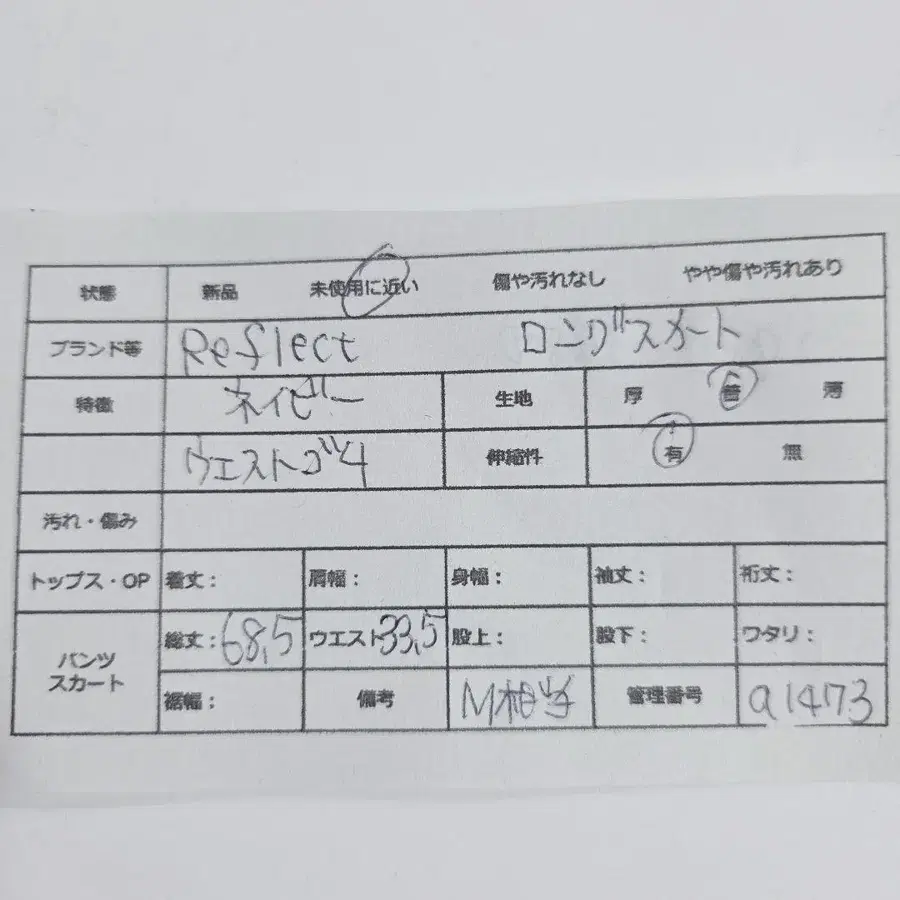 状態 新品 未使用に近い 傷や汚れなし やや傷や汚れあり
ブランド等 Reflect ロングスカート
特徴 ネイビー 生地 厚 普 薄
ウエストゴム 伸縮性 有 無
汚れ・傷み
トップス・OP 着丈: 肩幅: 身幅: 袖丈: 裄丈:
パンツ スカート 総丈:68,5 ウエスト33,5 股上: 股下: ワタリ:
裾幅: 備考 M相当 管理番号 a1473